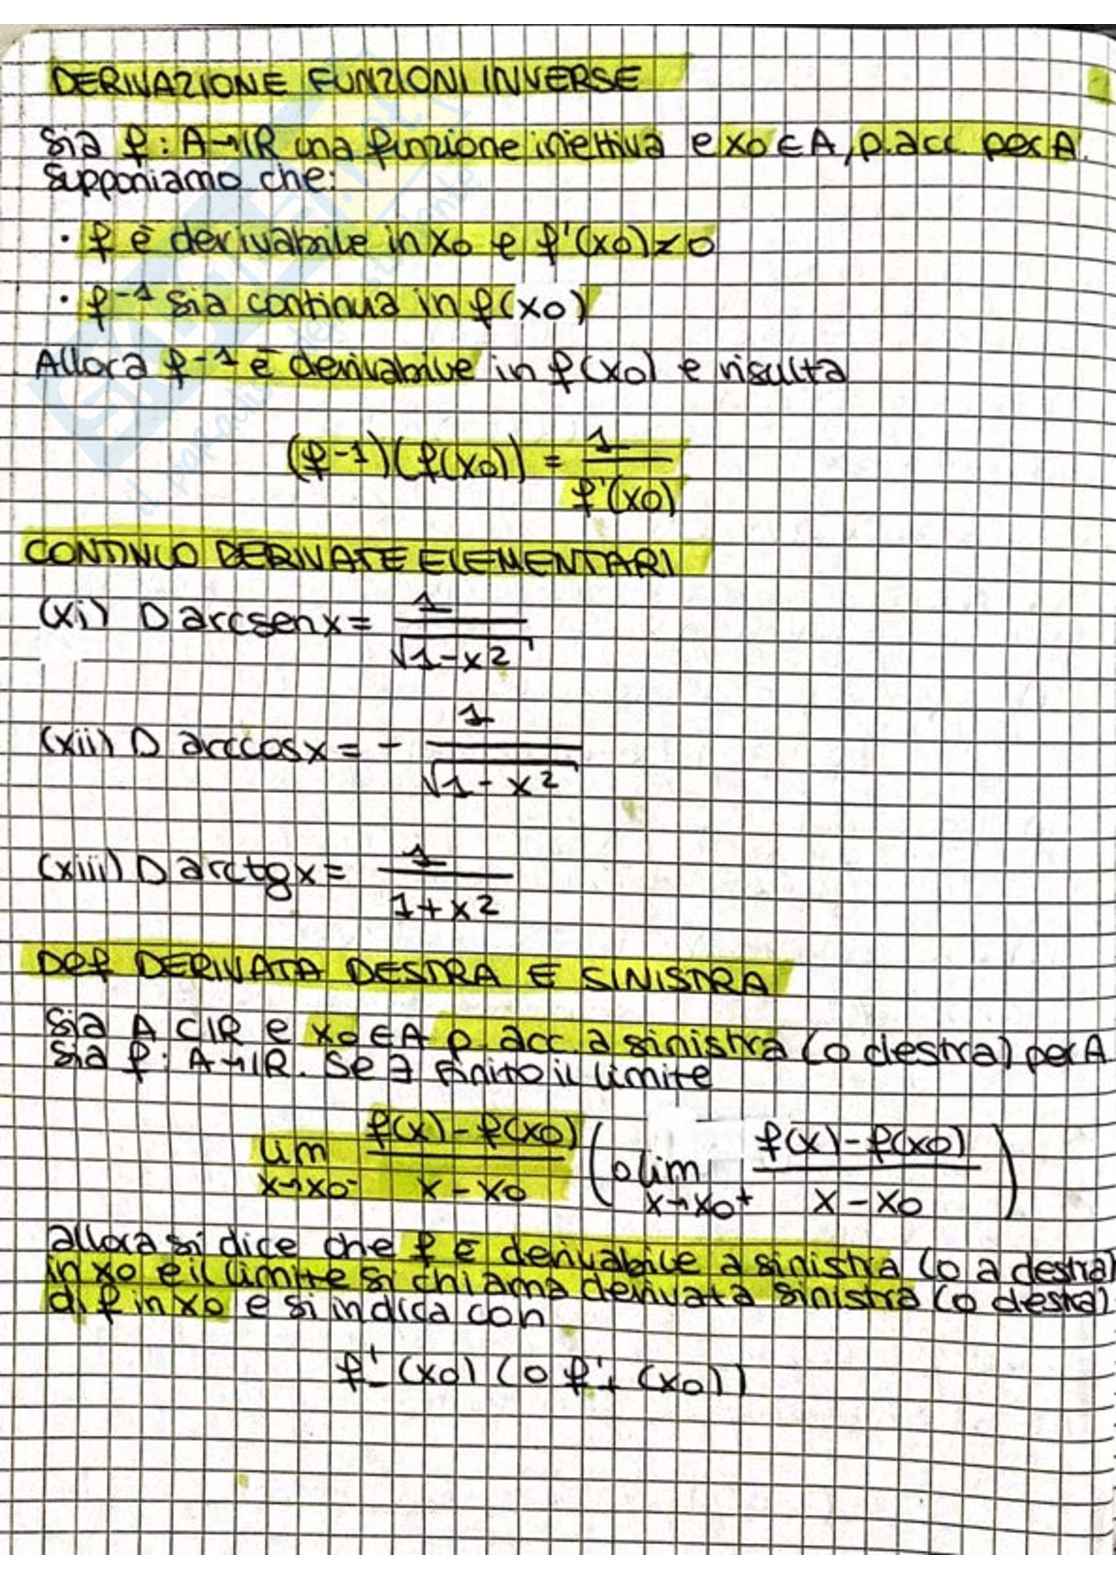 DERIVAZIONE FUNZIONI INVERSE
Sia f: A→IR una funzione iniettiva e x0 ∈ A, p. acc per A.
Supponiamo che:
· f è derivabile in x0 e f'(x0)≠0
· f-1 sia continua in f(x0)
Allora f-1 è derivabile in f(x0) e risulta
(f-1)(f(x0)) = 1/f'(x0)
CONTINUO DERIVATE ELEMENTARI
(xi) D arcsenx = 1/√1-x2
(xii) D arccosx = - 1/√1-x2
(xiii) D arctgx = 1/1+x2
Def DERIVATA DESTRA E SINISTRA
Sia A ⊂ IR e x0 ∈ A p. acc. a sinistra (o destra) per A
Sia f: A→IR. Se ∃ finito il limite
lim x→x0- f(x)-f(x0)/x-x0 (o lim x→x0+ f(x)-f(x0)/x-x0)
allora si dice che f è derivabile a sinistra (o a destra)
in x0 e il limite si chiama derivata sinistra (o destra)
di f in x0 e si indica con
f'-(x0) (o f'+(x0))